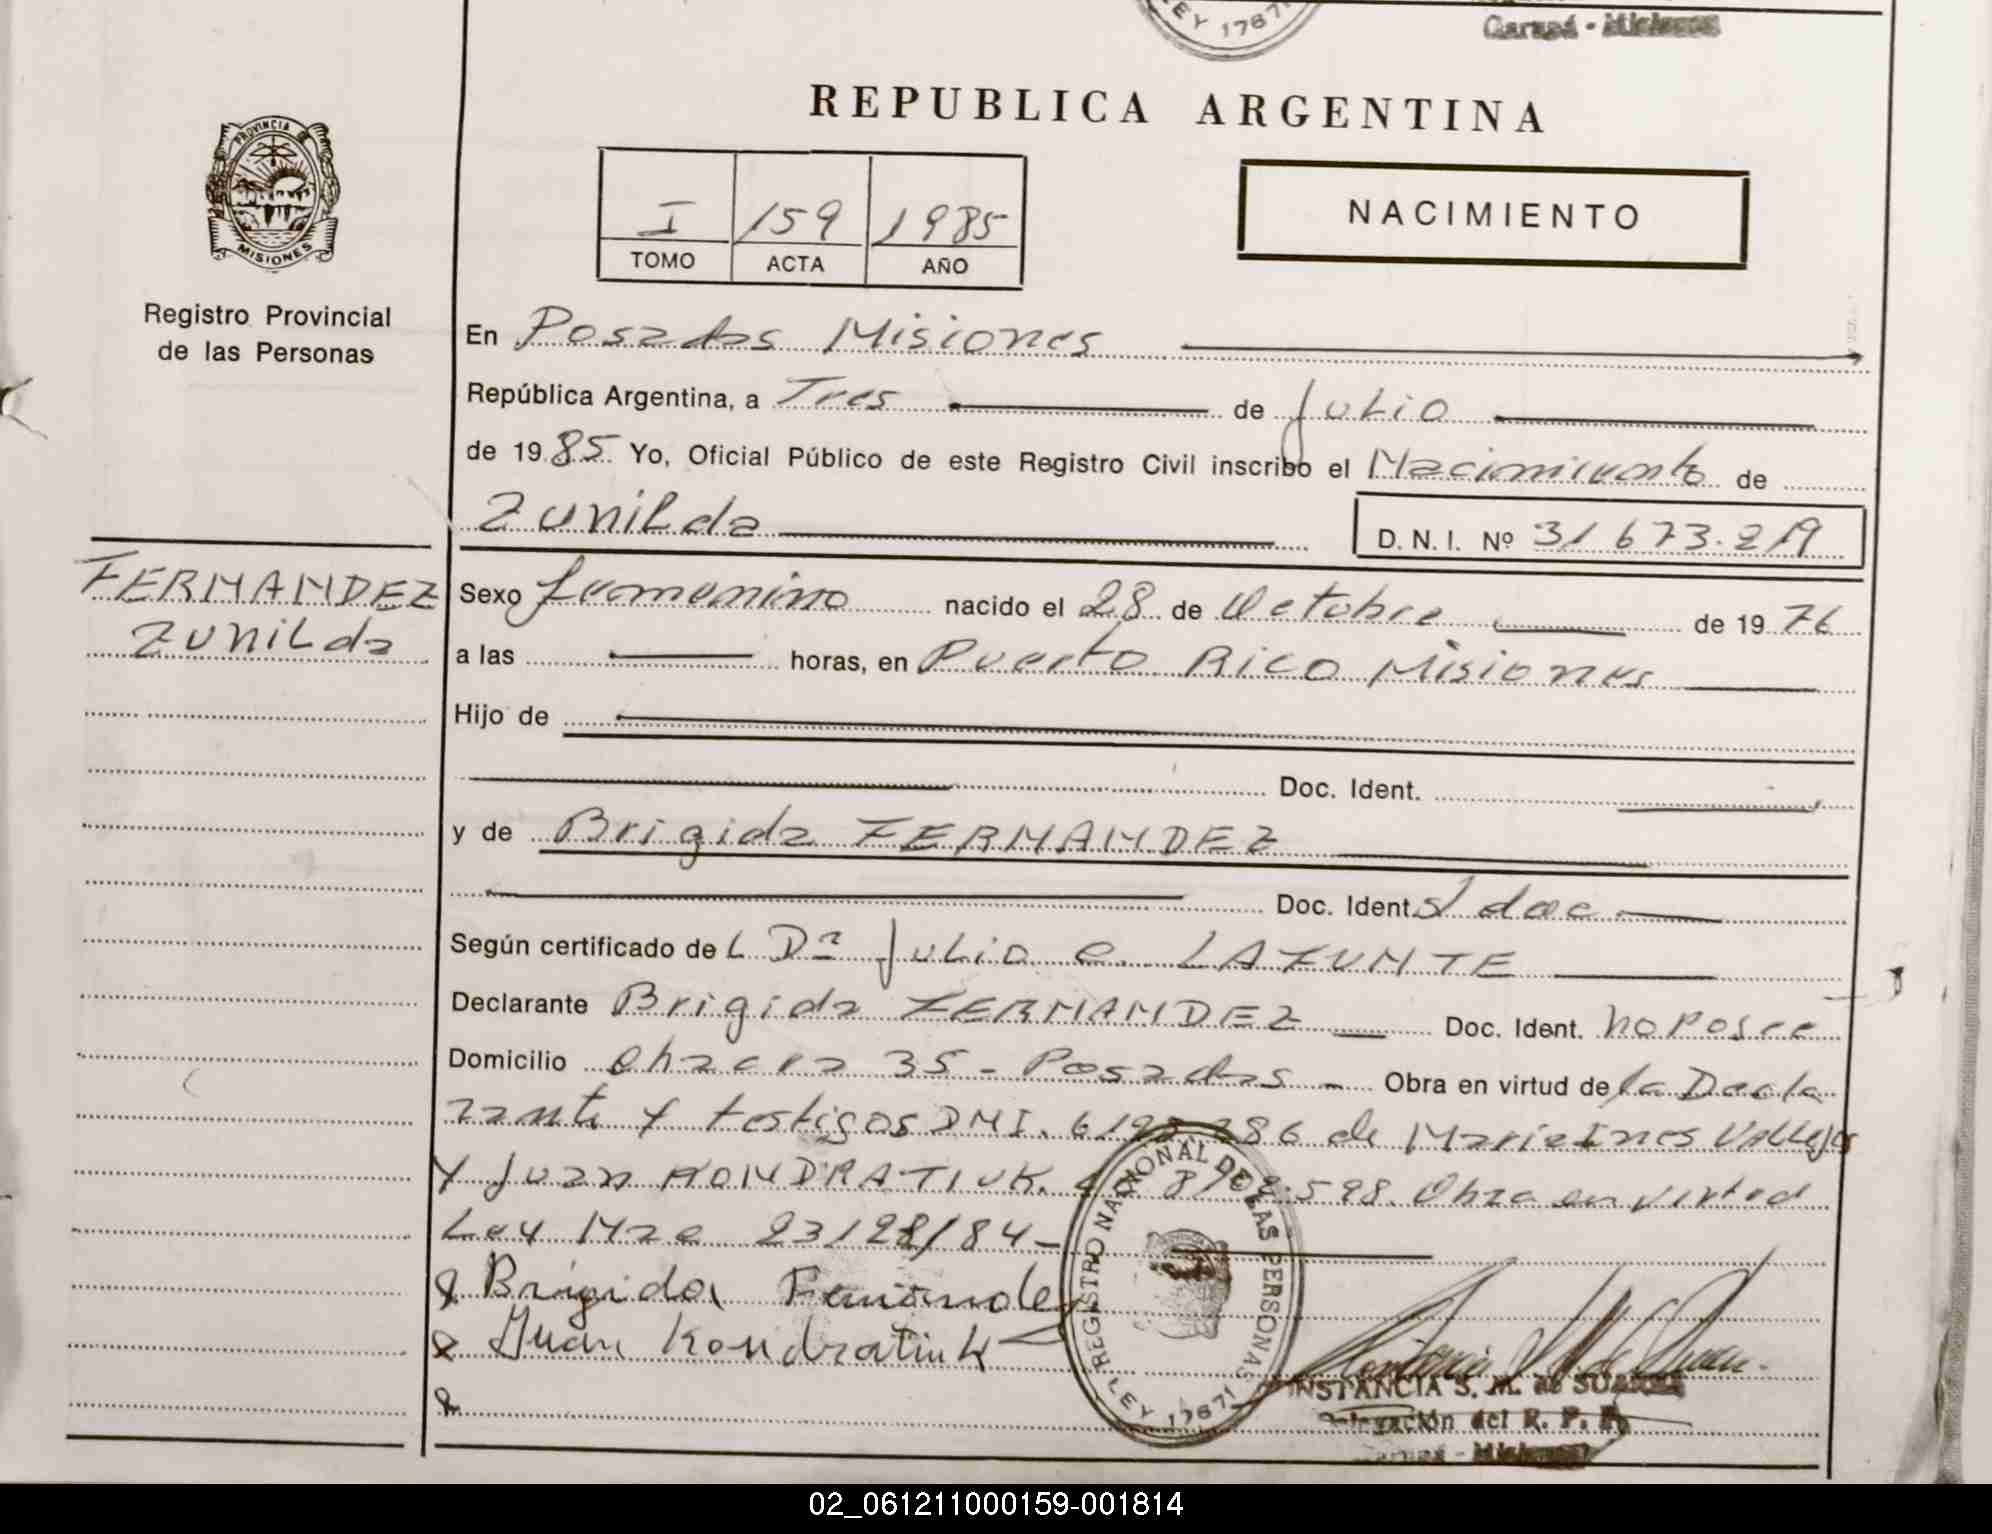 LEY 17671
Garupá - Misiones
REPUBLICA ARGENTINA
PROVINCIA DE
MISIONES
Registro Provincial
de las Personas
I 159 1985
TOMO ACTA AÑO
NACIMIENTO
En Posadas Misiones
República Argentina, a Tres de Julio
de 1985 Yo, Oficial Público de este Registro Civil inscribo el Nacimiento de
Zunilda D. N. I. Nº 31 673.219
FERNANDEZ
Zunilda
Sexo femenino nacido el 28 de Octubre de 1976
a las horas, en Puerto Rico Misiones
Hijo de
Doc. Ident.
y de Brigida FERNANDEZ
Doc. Ident. S/ doc
Según certificado de L Dr Julio C. LAFUNTE
Declarante Brigida FERNANDEZ Doc. Ident. no posee
Domicilio chacra 35 - Posadas - Obra en virtud de la Decla
rante y testigos DNI. de Maria Ines Vallejos
Y Juan KONDRATIUK. 598. Obra en virtud
Ley Nac 23128/84-
Brigida Fernandez
Juan Kondratiuk
REGISTRO NACIONAL DE LAS PERSONAS
LEY 17671
CONSTANCIA S. M. de
Delegación del R. P. P.
Garupá - Misiones
02_061211000159-001814